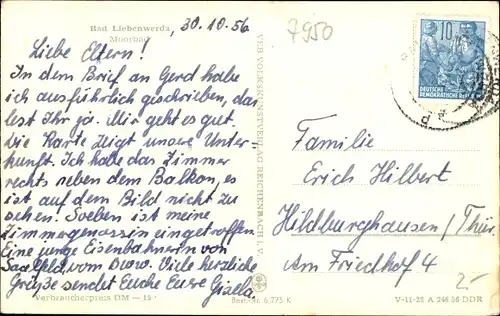 Bad Liebenwerda
Moorbad
30.10.56
Liebe Eltern!
In dem Brief an Gerd habe
ich ausführlich geschrieben, das
lest Ihr ja. Mir geht es gut.
Die Karte zeigt unsere Unter-
kunft. Ich habe das Zimmer
rechts neben dem Balkon, es
ist auf dem Bild nicht zu
sehen. Soeben ist meine
Zimmergenossin eingetroffen.
Eine junge Eisenbahnerin von
Saalfeld, vom Bww. Viele herzliche
Grüße sendet Euch Eure Gisela
Verbraucherpreis DM —.15
Best.-Nr. 6,775 K
VEB VOLKSKUNSTVERLAG REICHENBACH i. V.
7950
10
DEUTSCHE
DEMOKRATISCHE REPUBLIK
Familie
Erich Hilbert
Hildburghausen/Thür.
Am Friedhof 4
2-
V-11-28 A 246 56 DDR